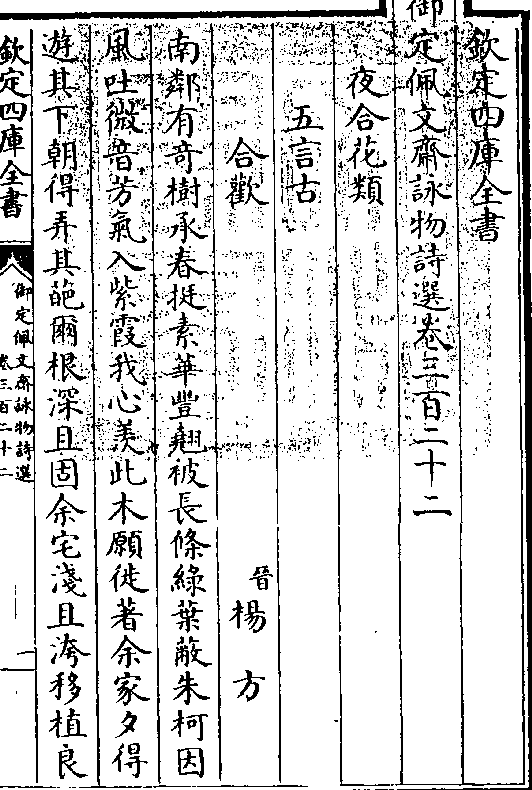 欽定四庫全書
御定佩文齋詠物詩選卷三百二十二
夜合花類
五言古
合歡
晉楊方
南鄰有竒樹承春挺素華豐翹被長條綠葉蔽朱柯因
風吐微音芳氣入紫霞我心羨此木願徙著余家夕得
遊其下朝得弄其葩爾根深且固余宅淺且洿移植良
欽定四庫全書
御定佩文齋詠物詩選
卷三百二十二
一